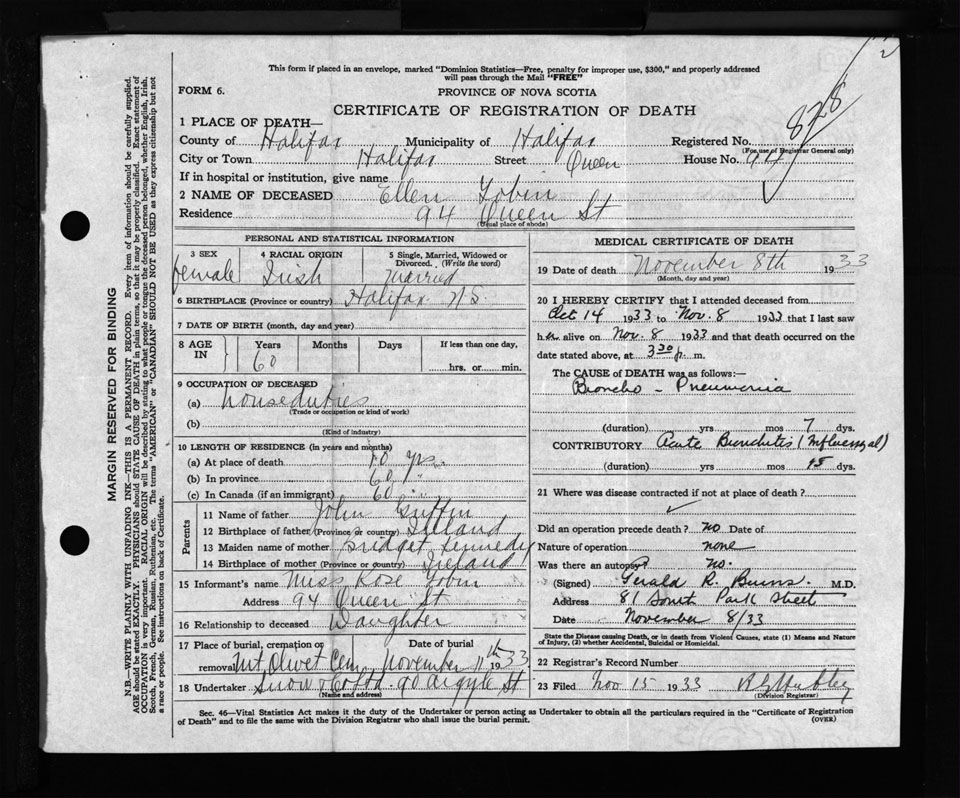 This form if placed in an envelope, marked "Dominion Statistics—Free, penalty for improper use, $300," and properly addressed
will pass through the Mail "FREE"
FORM 6.
PROVINCE OF NOVA SCOTIA
CERTIFICATE OF REGISTRATION OF DEATH
828
1 PLACE OF DEATH—
County of Halifax Municipality of Halifax Registered No.
(For use of Registrar General only)
City or Town Halifax Street Queen House No. 94
If in hospital or institution, give name
2 NAME OF DECEASED Ellen Tobin
Residence 94 Queen St
(Usual place of abode)
PERSONAL AND STATISTICAL INFORMATION
3 SEX female
4 RACIAL ORIGIN Irish
5 Single, Married, Widowed or Divorced. (Write the word) married
6 BIRTHPLACE (Province or country) Halifax N S.
7 DATE OF BIRTH (month, day and year)
8 AGE IN Years 60 Months Days If less than one day, hrs. or min.
9 OCCUPATION OF DECEASED
(a) houseduties
(Trade or occupation or kind of work)
(b)
(Kind of industry)
10 LENGTH OF RESIDENCE (in years and months)
(a) At place of death 10 yrs.
(b) In province 60 "
(c) In Canada (if an immigrant) 60 "
Parents
11 Name of father John Griffin
12 Birthplace of father (Province or country) Ireland
13 Maiden name of mother Bridget Kennedy
14 Birthplace of mother (Province or country) Ireland
15 Informant's name Miss Rose Tobin
Address 94 Queen St
16 Relationship to deceased Daughter
17 Place of burial, cremation or removal Mt. Olivet Cem. Date of burial November 11th 1933
18 Undertaker Snow & Co Ltd. 90 Argyle St
(Name and address)
MEDICAL CERTIFICATE OF DEATH
19 Date of death November 8th 1933
(Month, day and year)
20 I HEREBY CERTIFY that I attended deceased from
Oct 14 1933 to Nov. 8 1933 that I last saw
her alive on Nov. 8 1933 and that death occurred on the
date stated above, at 3 30 p. m.
The CAUSE of DEATH was as follows:—
Broncho - Pneumonia
(duration) yrs mos 7 dys.
CONTRIBUTORY Acute Bronchitis (Influenzal)
(duration) yrs mos 15 dys.
21 Where was disease contracted if not at place of death?
Did an operation precede death? no Date of
Nature of operation none
Was there an autopsy? no.
(Signed) Gerald R. Burns. M.D.
Address 81 South Park Street
Date November 8/33
State the Disease causing Death, or in death from Violent Causes, state (1) Means and Nature
of Injury, (2) whether Accidental, Suicidal or Homicidal.
22 Registrar's Record Number
23 Filed Nov 15 1933
(Division Registrar)
Sec. 46—Vital Statistics Act makes it the duty of the Undertaker or person acting as Undertaker to obtain all the particulars required in the "Certificate of Registration
of Death" and to file the same with the Division Registrar who shall issue the burial permit.
(OVER)
MARGIN RESERVED FOR BINDING
N.B.—WRITE PLAINLY WITH UNFADING INK—THIS IS A PERMANENT RECORD. Every item of information should be carefully supplied.
AGE should be stated EXACTLY. PHYSICIANS should STATE CAUSE OF DEATH in plain terms, so that it may be properly classified. Exact statement of
OCCUPATION is very important. RACIAL ORIGIN will be described by stating to what people or tongue the deceased person belonged, whether English, Irish,
Scotch, French, German, Russian, Ruthenian, etc. The terms "AMERICAN" or "CANADIAN" SHOULD NOT BE USED as they express citizenship but not
a race or people. See instructions on back of Certificate.